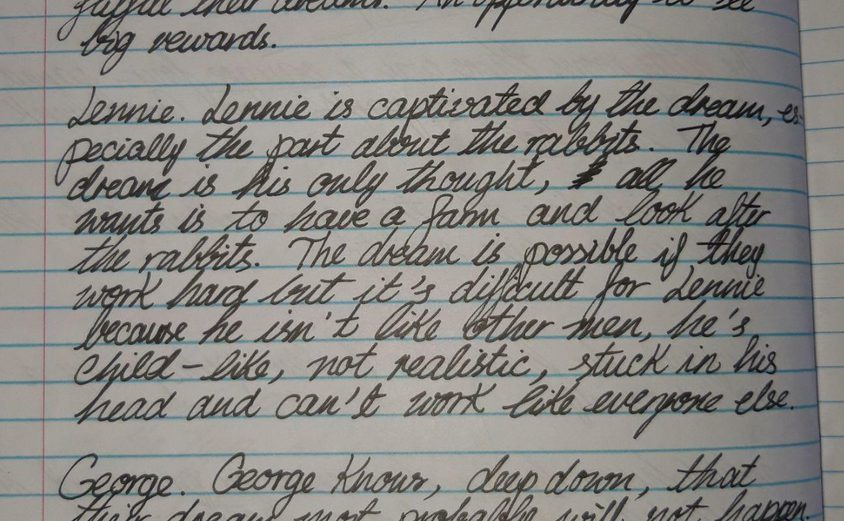 fulfill their dreams. An opportunity to see
big rewards.
Lennie. Lennie is captivated by the dream, es-
pecially the part about the rabbits. The
dream is his only thought, all he
wants is to have a farm and look after
the rabbits. The dream is possible if they
work hard but it's difficult for Lennie
because he isn't like other men, he's
child-like, not realistic, stuck in his
head and can't work like everyone else.
George. George knows, deep down, that
their dream most probable will not happen.